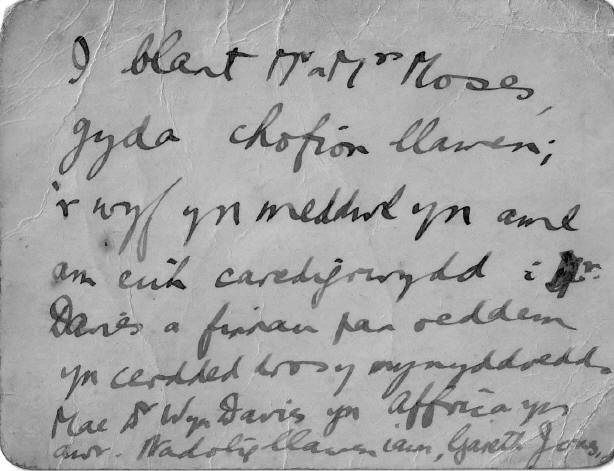 I blant Mr a Mrs Moses,
gyda chofion llawen;
'r wyf yn meddwl yn aml
am eich caredigrwydd i Dr.
Davies a finnau pan oeddem
yn cerdded dros y mynyddoedd.
Mae Dr Wyn Davies yn Affrica yn
awr. Nadolig llawen iawn, Gareth Jones,